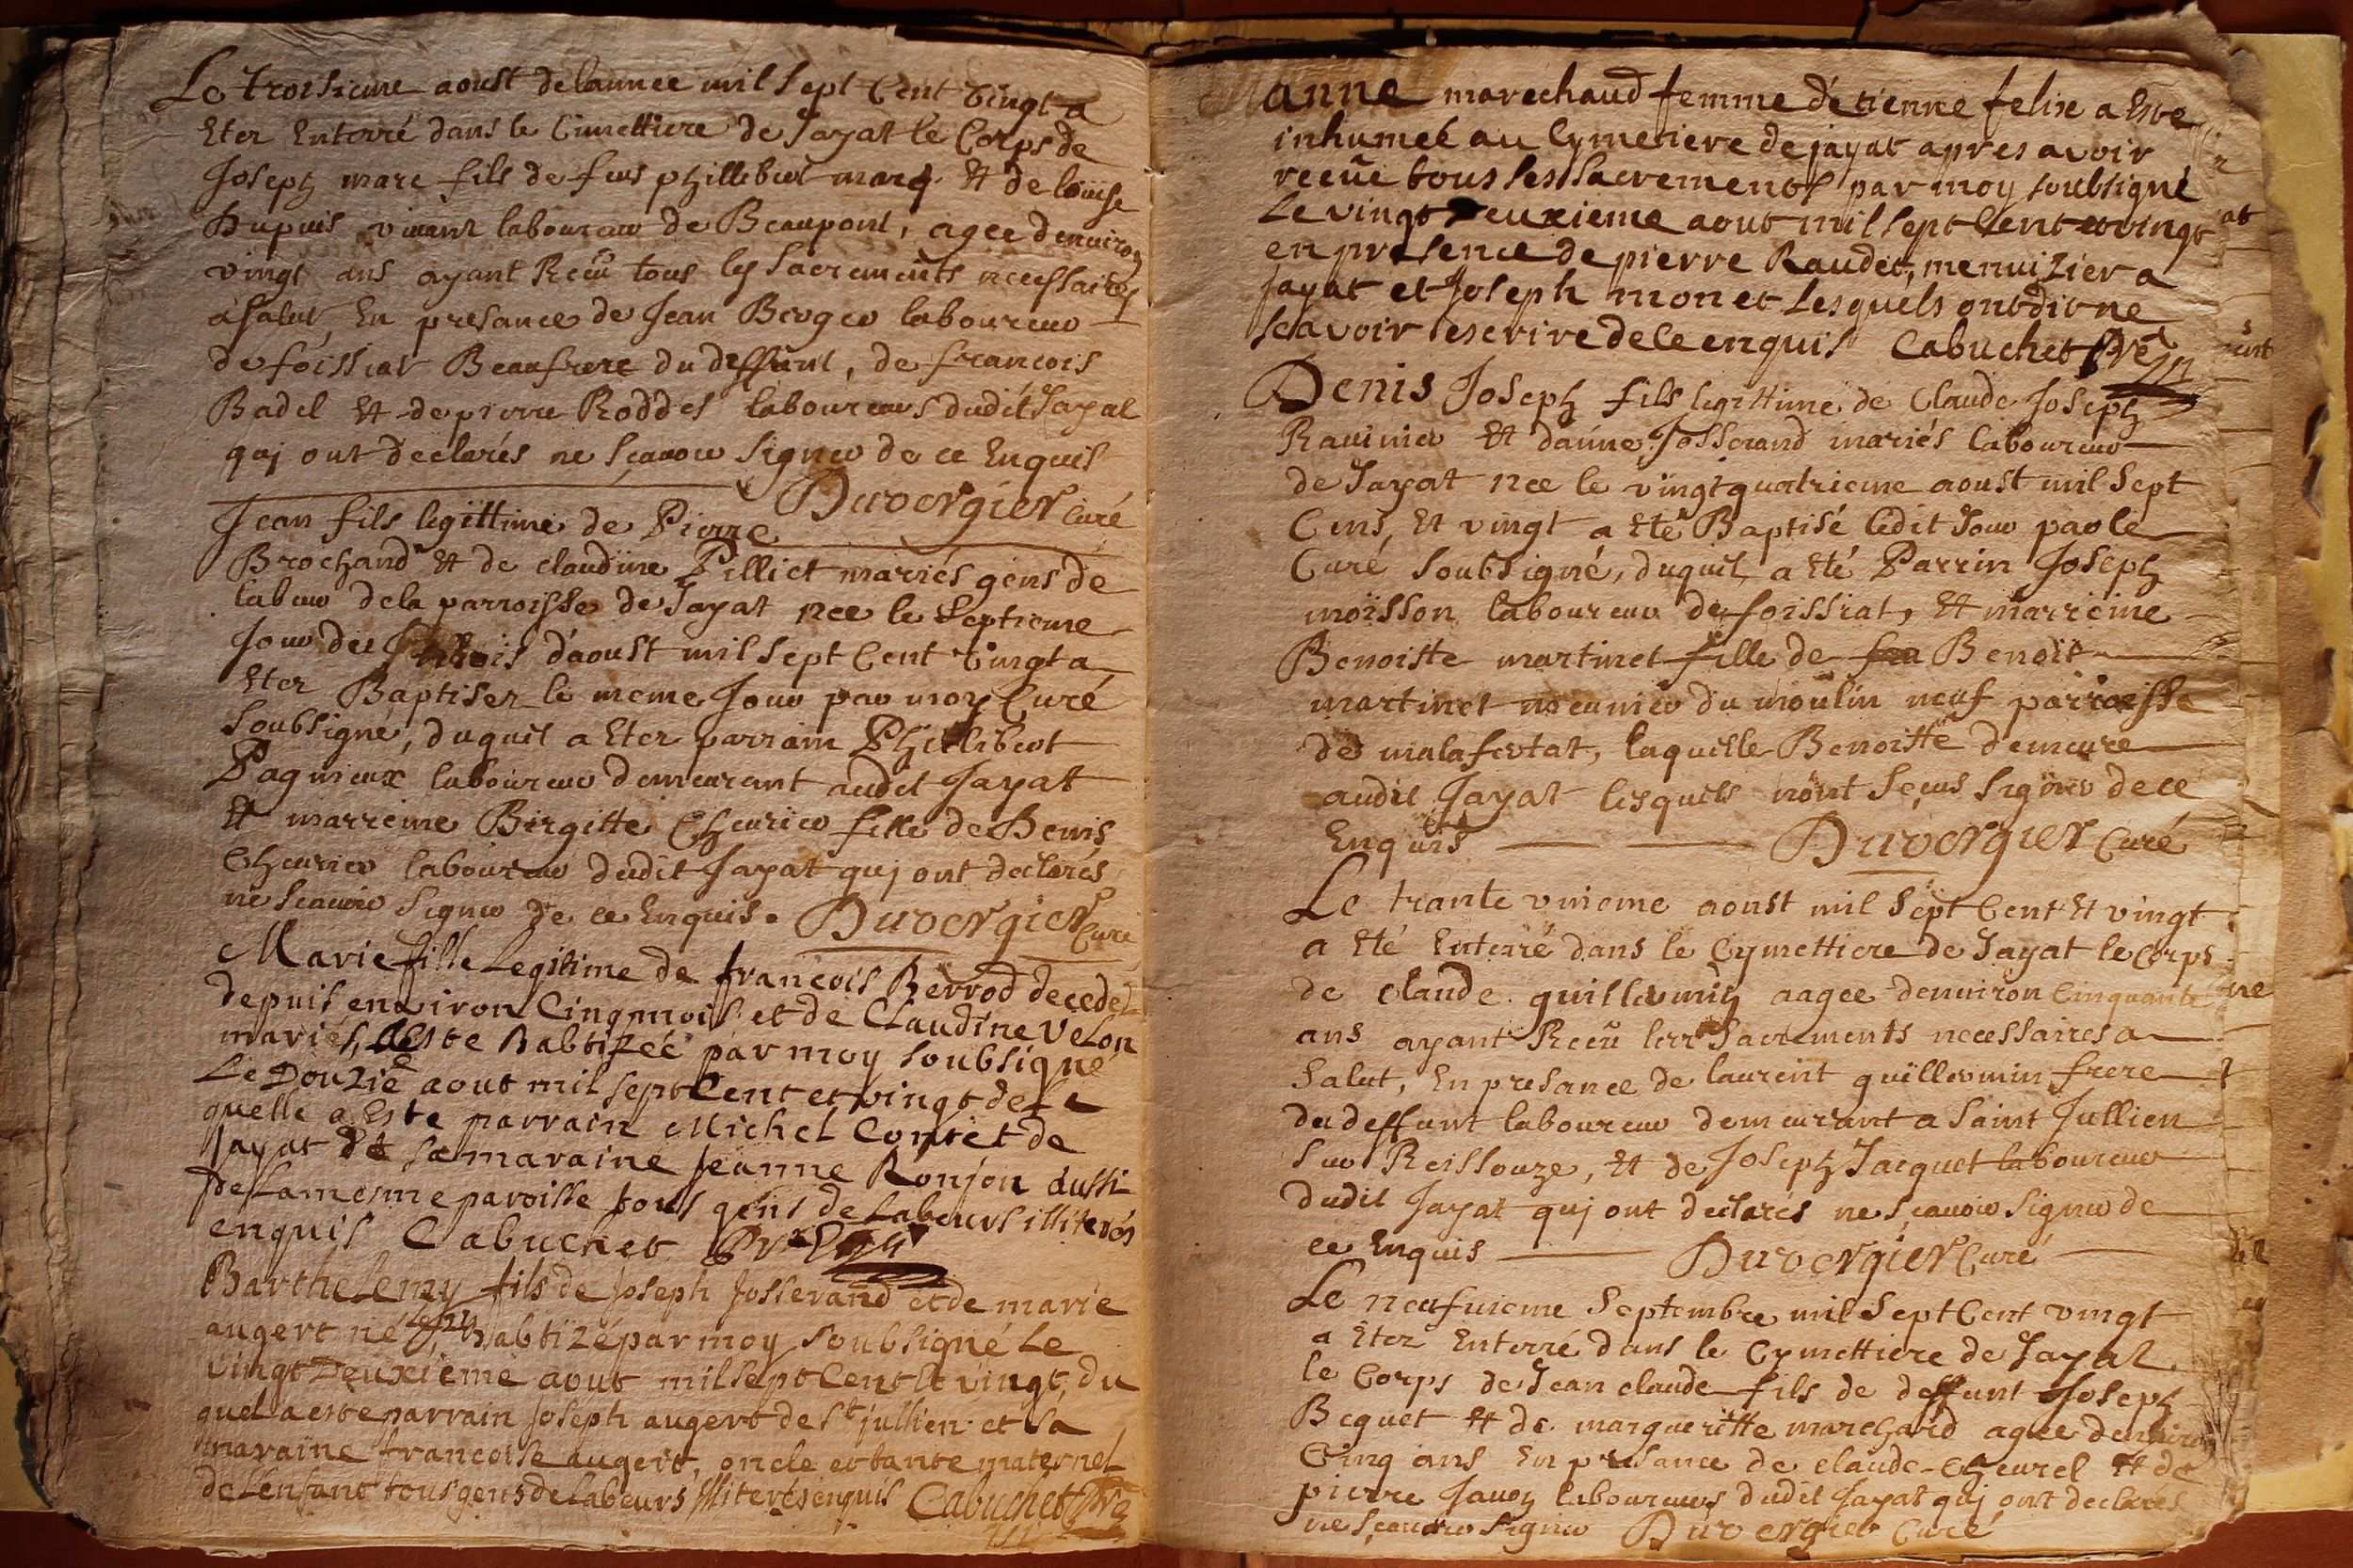 Le troisieme aoust delannee mil sept Cent vingt a
Eter Enterré dans le Cimettiere de Jayat le Corps de
Joseph marc fils de feus phillebert marq. Et de louise
Dupuis vivant laboureur de Beaupont, agee denviron
vingt ans ayant Receu tous les Sacrements necessaires
a salut, En presance de Jean Berger laboureur
de foissiat Beaufrere du deffunt, de francois
Badel Et de pierre Roddes laboureurs dudit Jayat
quj ont declarés ne sçavoir signer de ce Enquis
Duvergier Curé
Jean fils legittime de Pierre
Brochand Et de claudine Pilliet mariés gens de
labeur dela parroisse de Jayat nee le septieme
Jour du mois daoust mil sept Cent vingt a
Eter Baptiser le meme Jour par moy Curé
soubsigné, duquil a Eter parrain Philibert
Pagnieux laboureur demeurant audit Jayat
Et marreine Birgitte Cheurier fille de Denis
Cheurier laboureur dudit Jayat quj ont declarés
ne scavoir signer de ce Enquis. Duvergier Curé
Marie fille Legitime de francois Berrod decedé
depuis environ Cinq mois et de Claudine Velon
mariés, a Este Babtizée par moy soubsigné
Le Douziē aout mil sept Cent et vingt de La
quelle a Este parrain Michel Contet de
Jayat Et sa maraine Jeanne Ronjon aussi
de La mesme paroisse tous gens de Labeurs illiterés
enquis Cabuchet
Barthelemy fils de Joseph Josserand et de marie
augert né babtizé par moy soubsigné Le
vingt Deuxieme aout mil sept Cent et vingt, du
quel a este parrain Joseph augert de St jullien et sa
maraine francoise augert, oncle et tante maternel
de Lenfant tous gens de Labeurs illiterés enquis Cabuchet
anne marechaud femme d'etienne felix a Este
inhumeé au Cymetiere de jayat apres avoir
receüe tous les Sacrements par moy soubsigné
Le vingt Deuxieme aout mil sept Cent et vingt
en presence de pierre Raudet, menuizier a
jayat et Joseph monet Lesquels ont dit ne
scavoir escrire de ce enquis Cabuchet
Denis Joseph fils legittime de Claude Joseph
Ravinier Et danne Josserand mariés laboureur
de Jayat nee le vingt quatrieme aoust mil sept
Cens, Et vingt a Eté Baptisé ledit Jour par le
Curé soubsigné, duquil a Eté Parrin Joseph
moisson laboureur de foissiat, Et marreine
Benoiste martinet fille de Benoit
martinet meunier du moulin neuf parroisse
de malafertat, laquelle Benoiste demeure
audit Jayat lesquels nont sceus signer de ce
Enquis Duvergier Curé
Le trante unieme aoust mil sept Cent Et vingt
a Eté Enterré dans le Cymettiere de Jayat le Corps
de Claude guillermin aagee denviron Cinquante
ans ayant Receu les Sacrements necessaires a
Salut, En presance de laurent guillermin frere
du deffunt laboureur demeurant a Saint Jullien
sur Reissouze, Et de Joseph Jacquet laboureur
dudit Jayat quj ont declarés ne sçavoir signer de
ce Enquis Duvergier Curé
Le neufuieme Septembre mil sept Cent vingt
a Eter Enterré dans le Cymettiere de Jayat
le Corps de Jean claude fils de deffunt Joseph
Bequet Et de margueritte marchand agee denviron
Cinq ans En presance de claude Cheurel Et de
pierre Januy laboureurs dudit Jayat quj ont declarés
ne sçavoir signer Duvergier Curé